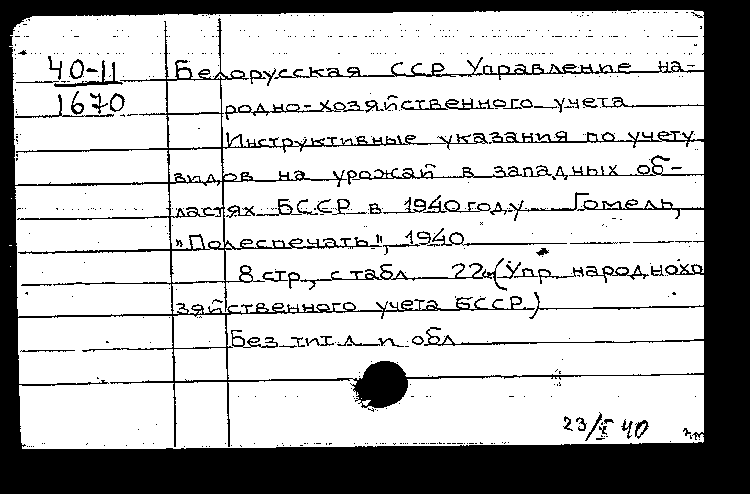 40-11
1670
Белорусская ССР Управление на-
родно-хозяйственного учета
Инструктивные указания по учету
видов на урожай в западных об-
ластях БССР в 1940 году Гомель,
"Полеспечать", 1940
8 стр., с табл 22 см (Упр народнохо
зяйственного учета БССР.)
Без тит.л и обл
23/X 40